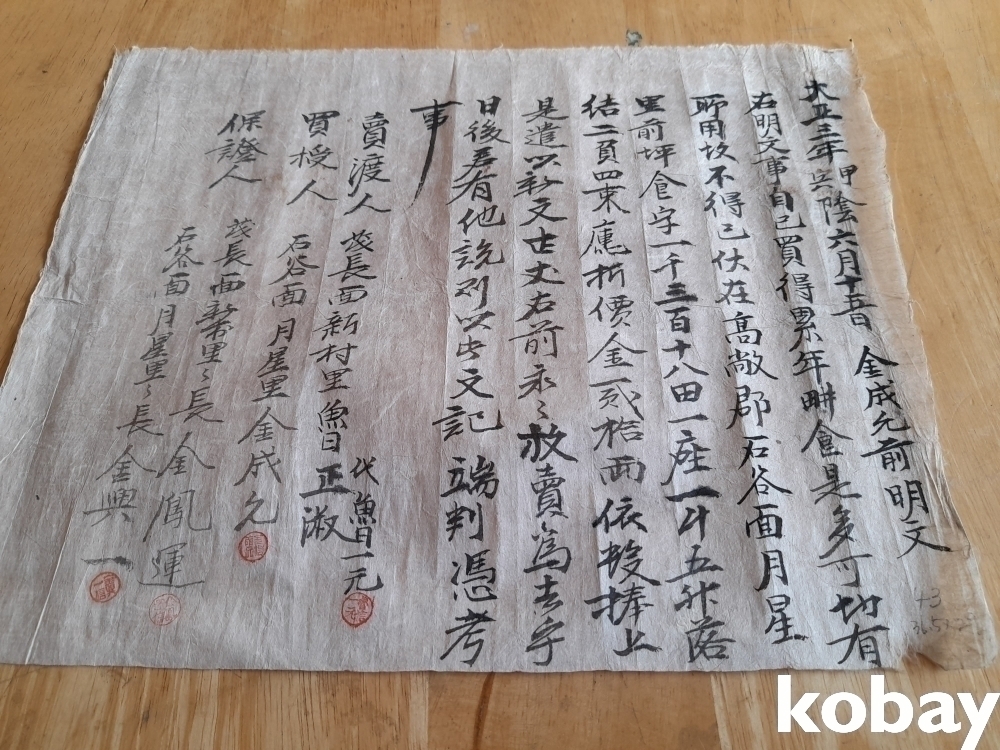 大正三年甲寅陰六月十五日 金成允前明文
右明文事自己買得累年畊食是多可切有
所用故不得已伏在高敞郡石谷面月星
里前坪食字一千三百十八田一座一斗五升落
結二負四束廤折價金貳拾兩依數捧上
是遣以新文壹丈右前永々放賣爲去乎
日後若有他說則以此文記 端判憑考
事
賣渡人 茂長面新村里魯正淑
代魯一元
買授人 石谷面月星里金成允
保證人 茂長面新村里々長 金鳳運
石谷面月星里々長 金興一
43
kobay